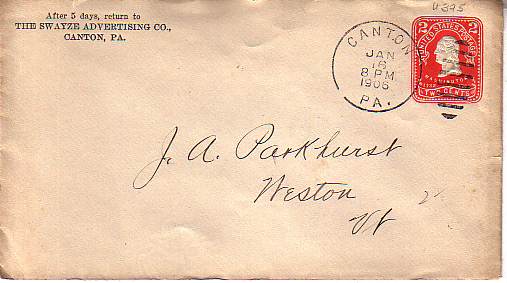 U395
After 5 days, return to
THE SWAYZE ADVERTISING CO.,
CANTON, PA.
CANTON
JAN
16
8 PM
1906
PA.
UNITED STATES POSTAGE
2 2
WASHINGTON
TWO CENTS
J. A. Parkhurst
Weston
Vt